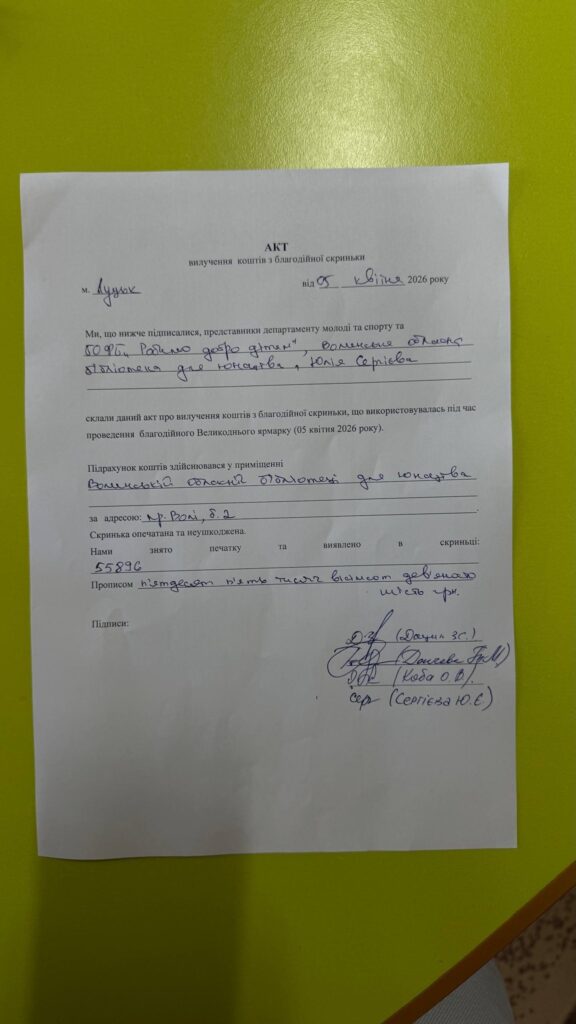 АКТ
вилучення коштів з благодійної скриньки
м. Луцьк від 05 квітня 2026 року
Ми, що нижче підписалися, представники департаменту молоді та спорту та
БО ФБ "Робимо добро дітям", Волинська обласна
бібліотека для юнацтва, Юлія Сергієва
склали даний акт про вилучення коштів з благодійної скриньки, що використовувалась під час
проведення благодійного Великоднього ярмарку (05 квітня 2026 року).
Підрахунок коштів здійснювався у приміщенні
Волинській обласній бібліотеці для юнацтва
за адресою: пр. Волі, б. 2
Скринька опечатана та неушкоджена.
Нами знято печатку та виявлено в скриньці:
55896
Прописом п'ятдесят п'ять тисяч вісімсот дев'яносто
шість грн.
Підписи:
(Дацик З.С.)
(Коба О.В).
(Сергієва Ю.Є)